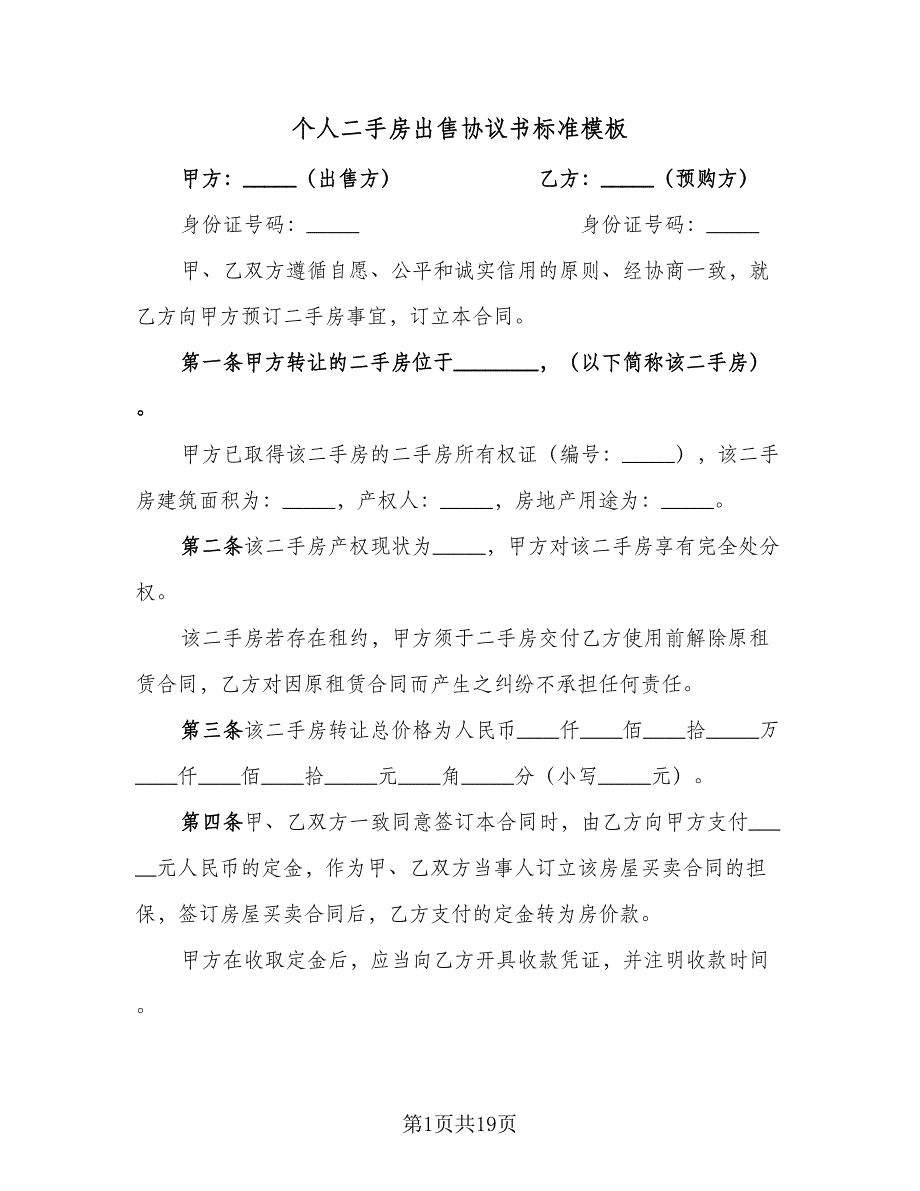 个人二手房出售协议书标准模板
甲方：_____（出售方） 乙方：_____（预购方）
身份证号码：_____ 身份证号码：_____
甲、乙双方遵循自愿、公平和诚实信用的原则、经协商一致，就
乙方向甲方预订二手房事宜，订立本合同。
第一条甲方转让的二手房位于________，（以下简称该二手房）
。
甲方已取得该二手房的二手房所有权证（编号：_____），该二手
房建筑面积为：_____，产权人：_____，房地产用途为：_____。
第二条该二手房产权现状为_____，甲方对该二手房享有完全处分
权。
该二手房若存在租约，甲方须于二手房交付乙方使用前解除原租
赁合同，乙方对因原租赁合同而产生之纠纷不承担任何责任。
第三条该二手房转让总价格为人民币____仟____佰____拾_____万
____仟____佰____拾_____元____角_____分（小写_____元）。
第四条甲、乙双方一致同意签订本合同时，由乙方向甲方支付___
__元人民币的定金，作为甲、乙双方当事人订立该房屋买卖合同的担
保，签订房屋买卖合同后，乙方支付的定金转为房价款。
甲方在收取定金后，应当向乙方开具收款凭证，并注明收款时间
。
第1页共19页